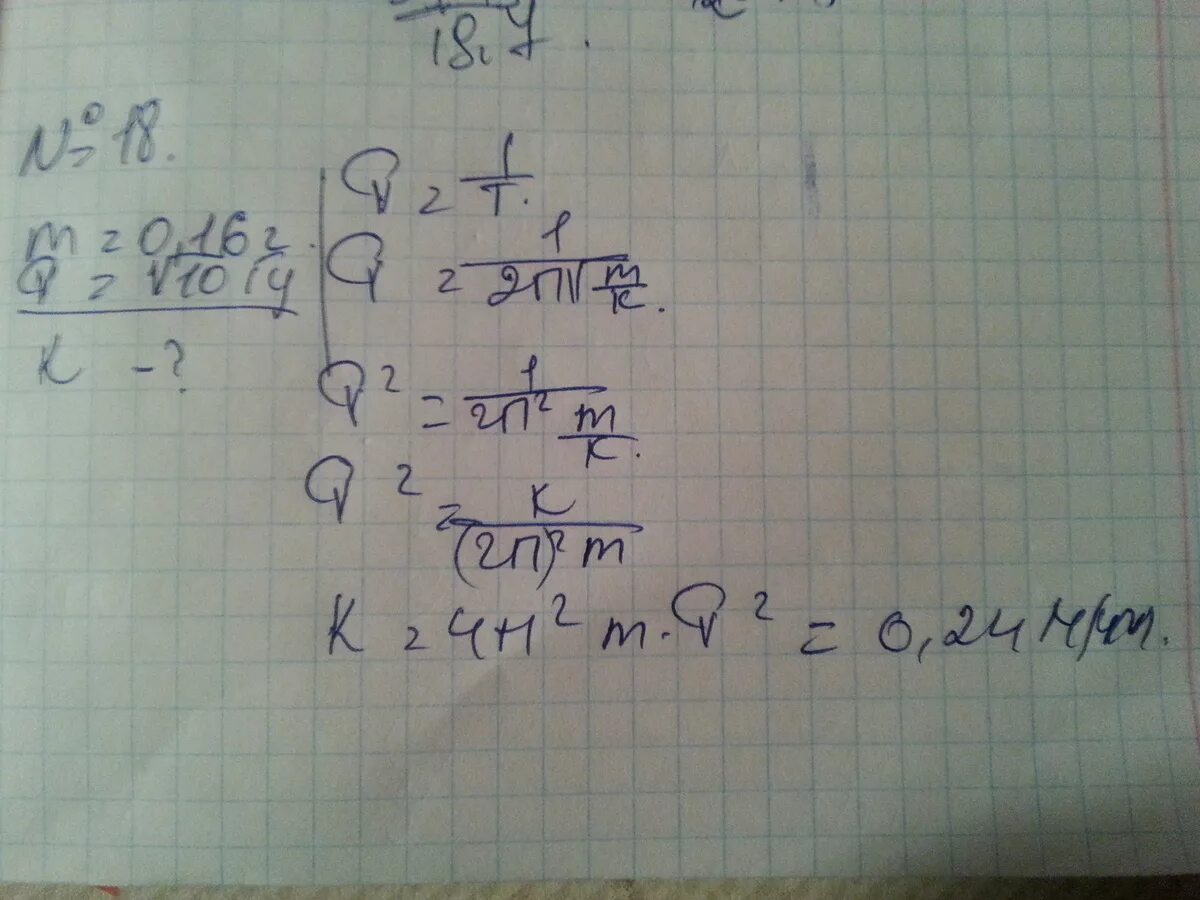 18,4.
№ 18.
m = 0,16 г.
ν = √10 Гц
K - ?
ν = 1/T.
ν = 1/(2π√(m/K)).
ν² = 1/(2π² m/K).
ν² = K/((2π)² m)
K = 4π² m · ν² = 0,24 Н/м.